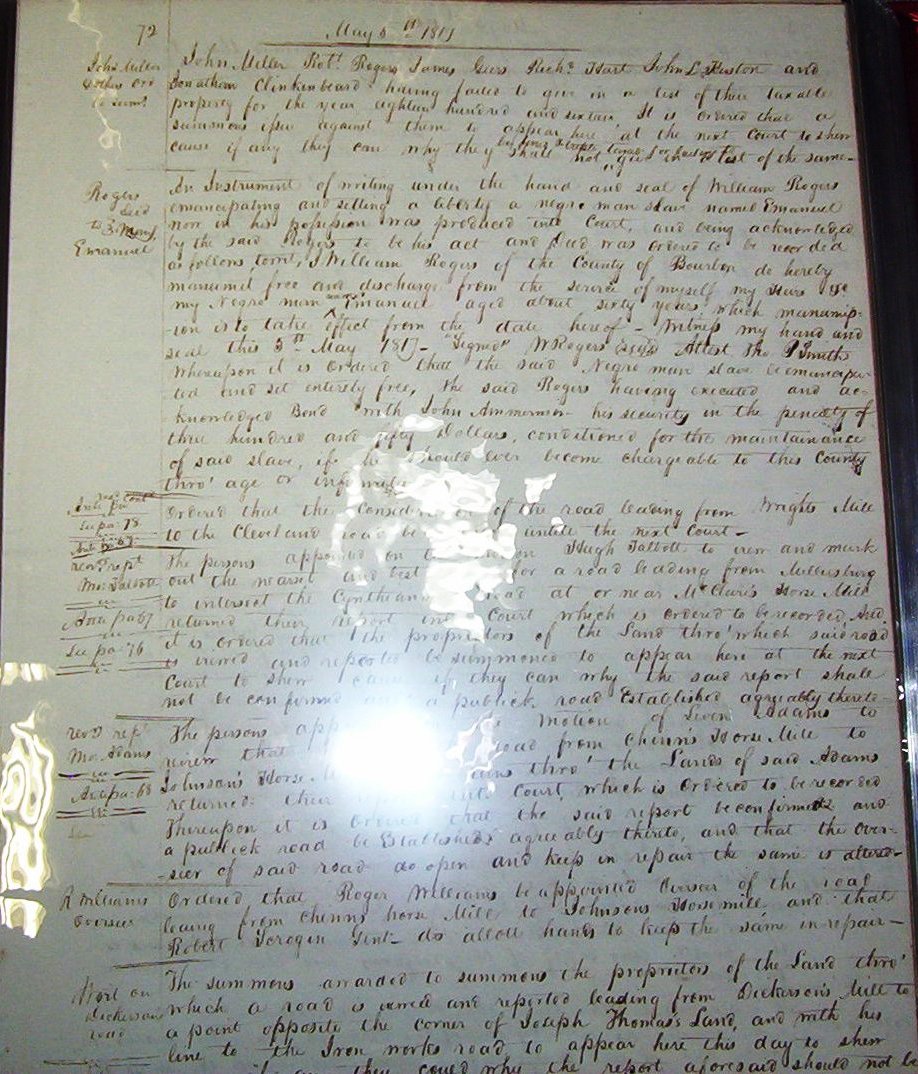 72
May 5th 1817
John Miller
& others Ord
to Summs
John Miller Robt. Rogers James Geers Richd. Hart John L Huston and
Jonathan Clinkenbeard having failed to give in a list of their taxable
property for the year eighteen hundred and sixteen It is ordered that a
summons issue against them to appear here at the next Court to shew
cause if any they can why they shall not give in a list of the same-
Rogers
Deed
to
Emanuel
An Instrument of writing under the hand and seal of William Rogers
emancipating and setting a liberty a negro man slave named Emanuel
now in his possession was produced into Court, and being acknowledged
by the said Rogers to be his act and Deed was ordered to be recorded
as follows towit, I William Rogers of the County of Bourbon do hereby
manumit free and discharge from the service of myself my Heirs &c
my Negro man named Emanuel aged about sixty years, which manumis-
-ion is to take effect from the date hereof - Witness my hand and
seal this 5th May 1817- Signed WRogers Attest Tho. P Smith
Whereupon it is Ordered that the said Negro man slave be emancipa-
ted and set entirely free, the said Rogers having executed and ac-
knowledged Bond with John Ammerman his security in the penalty of
three hundred and fifty Dollars, conditioned for the maintainance
of said slave, if he should ever become chargeable to this County
thro' age or infirmity
See pa. 78
Ordered that the Consideration of the road leading from Wrights Mill
to the Cleveland road be until the next Court-
Ante pa 67
rev. & rept
Mo. Talbott
Ante pa 67
See pa. 76
The persons appointed on the motion Hugh Talbott to view and mark
out the nearest and best way for a road leading from Millersburg
to intersect the Cynthiana road at or near McClure's Horse Mill
returned their report into Court which is ordered to be recorded, And
it is ordered that the proprietors of the Land thro' which said road
is viewed and reported be summoned to appear here at the next
Court to shew cause if they can why the said report shall
not be confirmed and a publick road Established agreeably thereto-
rev. & rept
Mo. Adams
Ante pa. 68
The persons appointed on the Motion of Leven Adams to
view that road from Chinn's Horse Mill to
Johnson's Horse Mill thro' the Lands of said Adams
returned their report into Court, which is Ordered to be recorded
Thereupon it is ordered that the said report be confirmed and
a publick road be Established agreeably thereto, and that the over-
-sier of said road do open and keep in repair the same is altered-
R Williams
Overseer
Ordered that Roger Williams be appointed Overseer of the road
leaing from Chinns horse Mill to Johnsons Horsemill and that
Robert Scrogin Gent- do allott hands to keep the same in repair-
Writ on
Dickersons
road
The summons awarded to summons the proprietors of the Land thro'
which a road is viewed and reported leading from Dickerson's Mill to
a point opposite the corner of Joseph Thomas's Land, and with his
line to the Iron works road to appear here this day to shew
they could why the report aforesaid should not be